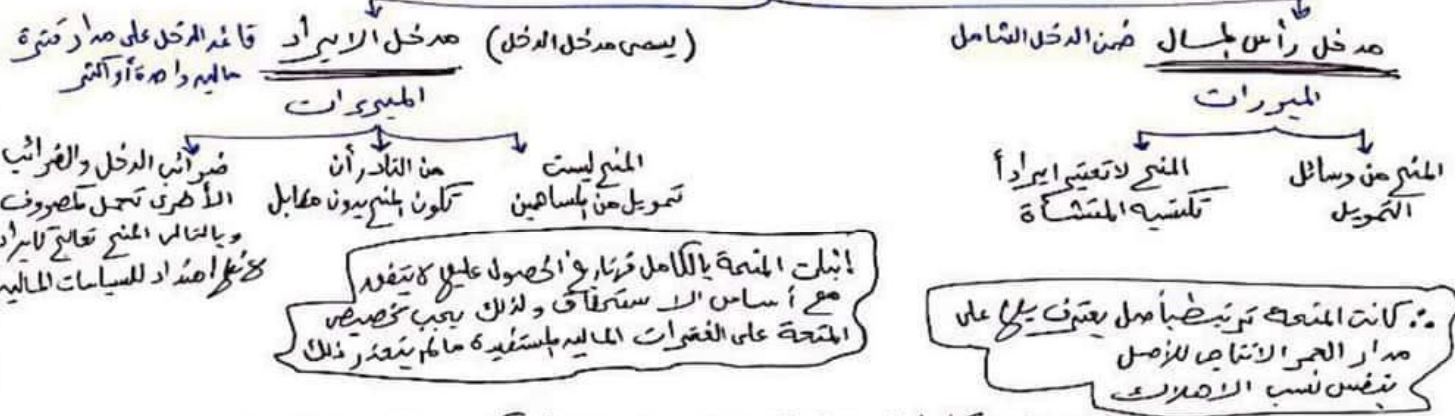 مدخل رأس المال ضمن الدخل الشامل
المبررات
المنح من وسائل
التمويل
المنح لا تعتبر ايراداً
تكتسبه المنشأة
∴ كانت المنحة ترتبط بأصل يعترف بها على
مدار العمر الانتاجى للأصل
بنفس نسب الاهلاك
(يسمى مدخل الدخل) مدخل الايراد قائمة الدخل على مدار فترة
ماليه واحدة أو أكثر
المبررات
المنح ليست
تمويل من المساهمين
من النادر أن
تكون المنح بدون مقابل
ضرائب الدخل والضرائب
الأخرى تحمل كمصروف
وبالتالى المنح تعالج كايراد
لانها امتداد للسياسات الماليه
إثبات المنحة بالكامل فى تاريخ الحصول عليها لا يتفق
مع أساس الاستحقاق ولذلك يجب تخصيص
المنحة على الفترات الماليه المستفيدة مالم يتعذر ذلك